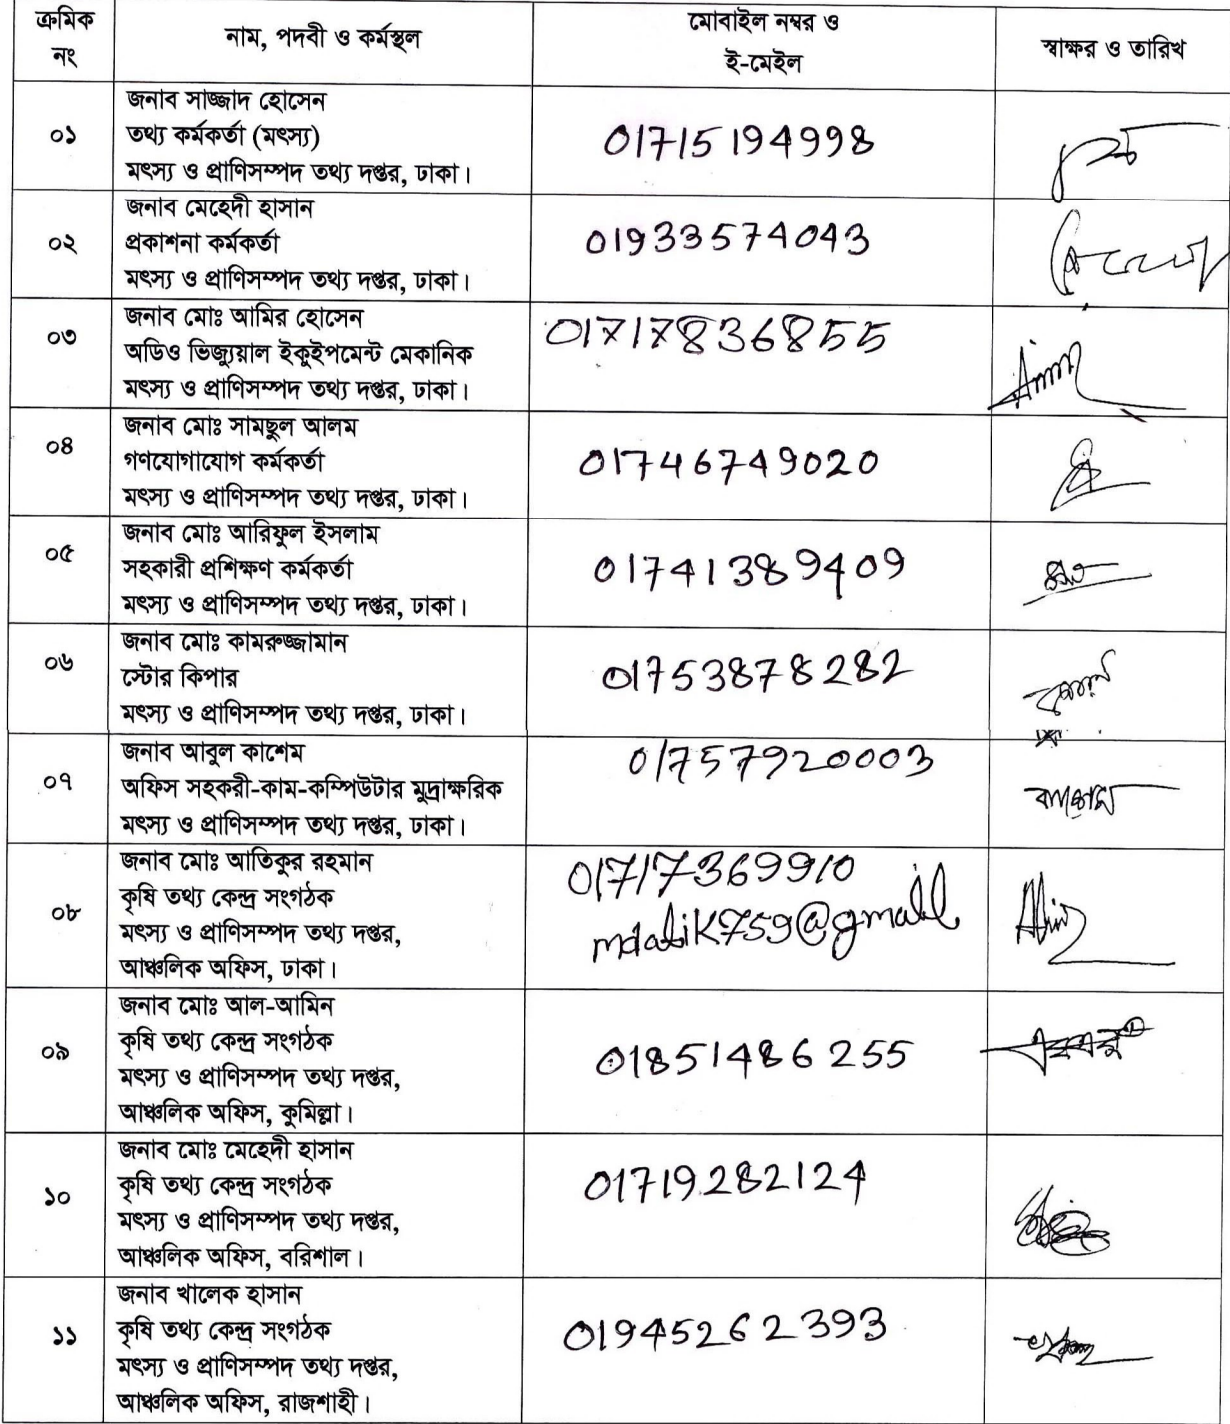 ক্রমিক
নং
নাম, পদবী ও কর্মস্থল
মোবাইল নম্বর ও
ই-মেইল
স্বাক্ষর ও তারিখ
০১
জনাব সাজ্জাদ হোসেন
তথ্য কর্মকর্তা (মৎস্য)
মৎস্য ও প্রাণিসম্পদ তথ্য দপ্তর, ঢাকা।
01715194998
০২
জনাব মেহেদী হাসান
প্রকাশনা কর্মকর্তা
মৎস্য ও প্রাণিসম্পদ তথ্য দপ্তর, ঢাকা।
01933574043
০৩
জনাব মোঃ আমির হোসেন
অডিও ভিজ্যুয়াল ইকুইপমেন্ট মেকানিক
মৎস্য ও প্রাণিসম্পদ তথ্য দপ্তর, ঢাকা।
01717836855
০৪
জনাব মোঃ সামছুল আলম
গণযোগাযোগ কর্মকর্তা
মৎস্য ও প্রাণিসম্পদ তথ্য দপ্তর, ঢাকা।
01746749020
০৫
জনাব মোঃ আরিফুল ইসলাম
সহকারী প্রশিক্ষণ কর্মকর্তা
মৎস্য ও প্রাণিসম্পদ তথ্য দপ্তর, ঢাকা।
01741389409
০৬
জনাব মোঃ কামরুজ্জামান
স্টোর কিপার
মৎস্য ও প্রাণিসম্পদ তথ্য দপ্তর, ঢাকা।
01753878282
০৭
জনাব আবুল কাশেম
অফিস সহকরী-কাম-কম্পিউটার মুদ্রাক্ষরিক
মৎস্য ও প্রাণিসম্পদ তথ্য দপ্তর, ঢাকা।
01757920003
০৮
জনাব মোঃ আতিকুর রহমান
কৃষি তথ্য কেন্দ্র সংগঠক
মৎস্য ও প্রাণিসম্পদ তথ্য দপ্তর,
আঞ্চলিক অফিস, ঢাকা।
01717369910
mdatik759@gmail
০৯
জনাব মোঃ আল-আমিন
কৃষি তথ্য কেন্দ্র সংগঠক
মৎস্য ও প্রাণিসম্পদ তথ্য দপ্তর,
আঞ্চলিক অফিস, কুমিল্লা।
01851486255
১০
জনাব মোঃ মেহেদী হাসান
কৃষি তথ্য কেন্দ্র সংগঠক
মৎস্য ও প্রাণিসম্পদ তথ্য দপ্তর,
আঞ্চলিক অফিস, বরিশাল।
01719282124
১১
জনাব খালেক হাসান
কৃষি তথ্য কেন্দ্র সংগঠক
মৎস্য ও প্রাণিসম্পদ তথ্য দপ্তর,
আঞ্চলিক অফিস, রাজশাহী।
01945262393